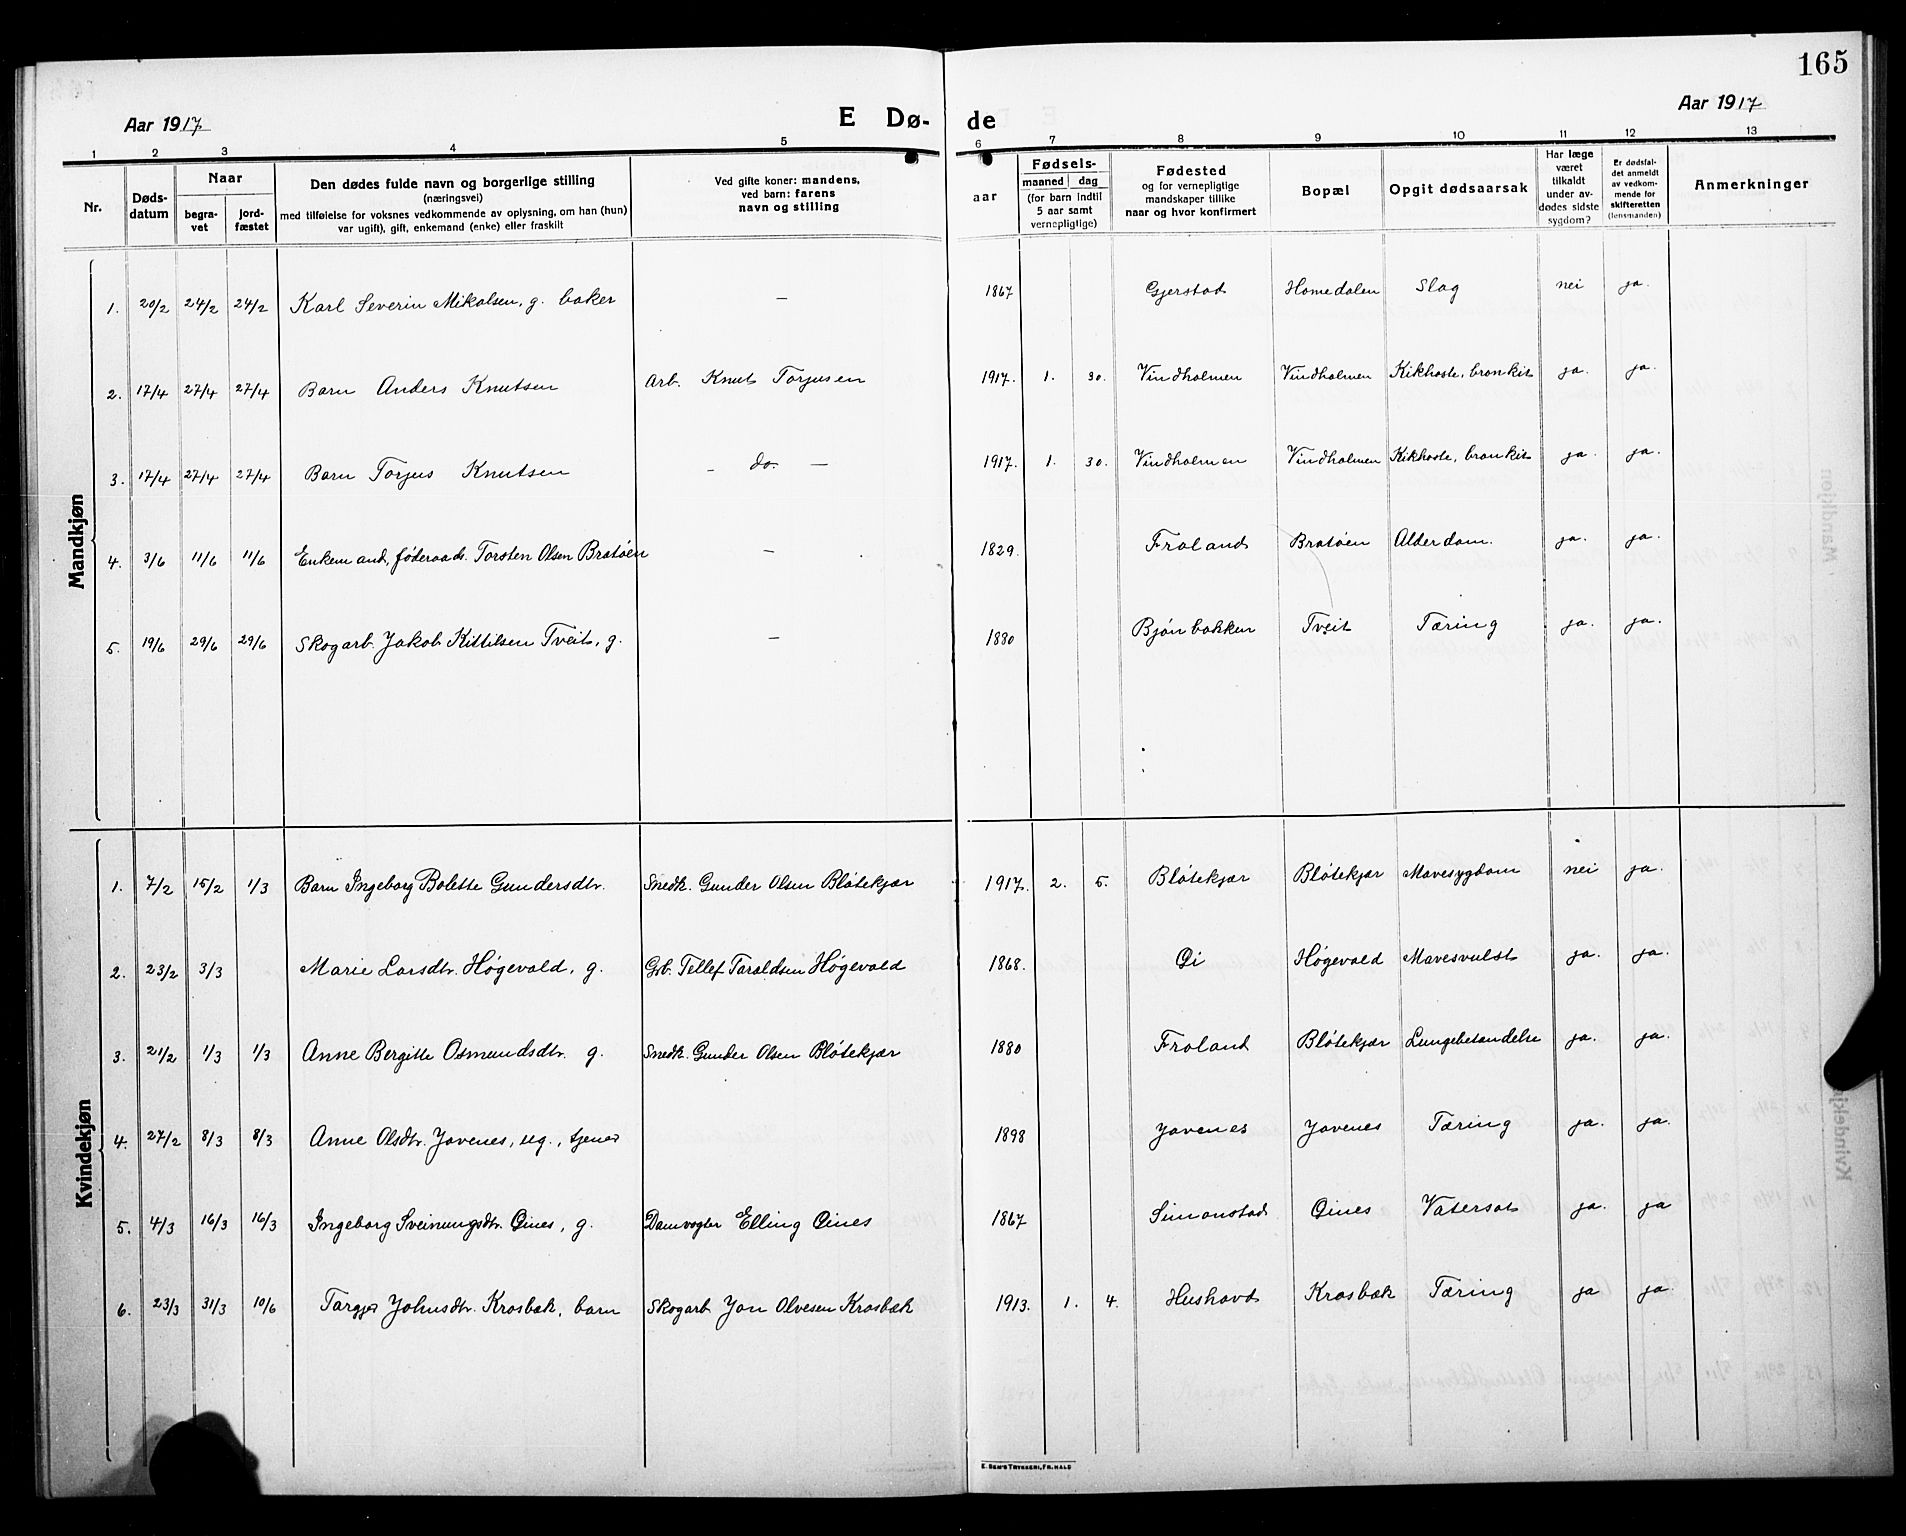 165
Aar 1917
E Dø-
de
Aar 1917
1 2 3 4 5 6 7 8 9 10 11 12 13
Nr.
Døds-
datum
Naar
begra-
vet
jord-
fæstet
Den dødes fulde navn og borgerlige stilling
(næringsvei)
med tilføielse for voksnes vedkommende av oplysning, om han (hun)
var ugift, gift, enkemand (enke) eller fraskilt
Ved gifte koner: mandens,
ved barn: farens
navn og stilling
aar
Fødsels-
maaned dag
(for barn indtil
5 aar samt
vernepligtige)
Fødested
og for vernepligtige
mandskaper tillike
naar og hvor konfirmert
Bopæl
Opgit dødsaarsak
Har læge
været
tilkaldt
under av-
dødes sidste
sygdom?
Er dødsfal-
det anmeldt
av vedkom-
mende for
skifteretten
(lensmanden)
Anmerkninger
Mandkjøn
1. 20/2 24/2 24/2 Karl Severin Mikalsen, g. baker — 1867 Gjerstad Homedalen Slag nei ja.
2. 17/4 27/4 27/4 Barn Anders Knutsen Arb. Knut Torjusen 1917. 1. 30. Vindholmen Vindholmen Kikhoste, bronkit ja. ja.
3. 17/4 27/4 27/4 Barn Torjus Knutsen — do. — 1917. 1. 30. Vindholmen Vindholmen Kikhoste, bronkit ja. ja.
4. 3/6 11/6 11/6 Enkemand, føderaads. Torsten Olsen Bratøen — 1829. Froland Bratøen Alderdom. ja. ja.
5. 19/6 29/6 29/6 Skogarb. Jakob Kittilsen Tveit, g. — 1880 Bjønbakken Tveit Tæring ja. ja.
Kvindekjøn
1. 7/2 15/2 1/3 Barn Ingeborg Bolette Gundersdtr. Snedk. Gunder Olsen Bløtekjær 1917. 2. 5. Bløtekjær Bløtekjær Mavesygdom nei ja.
2. 23/2 3/3 Marie Larsdtr. Høgevold, g. Grb. Tellef Taraldsen Høgevold 1868. Øi Høgevold Mavesvulst ja. ja.
3. 21/2 1/3 1/3 Anne Bergitte Osmundsdtr. g. Snedk. Gunder Olsen Bløtekjær 1880 Froland Bløtekjær Lungebetændelse ja. ja.
4. 27/2 8/3 8/3 Anne Olsdtr. Jovenes, ug., tjener 1898 Jovenes Jovenes Tæring ja. ja.
5. 4/3 16/3 16/3 Ingeborg Sveinungsdtr. Øines, g. Damvogter Elling Øines 1867 Simonstad Øines Vatersot ja. ja
6. 23/3 31/3 10/6 Johnsdtr. Krosbæk, barn Skogarb. Jon Olvesen Krosbæk 1913. 1. 4. Hushovd Krosbæk Tæring ja ja.
E. SEM'S TRYKKERI, FR.HALD